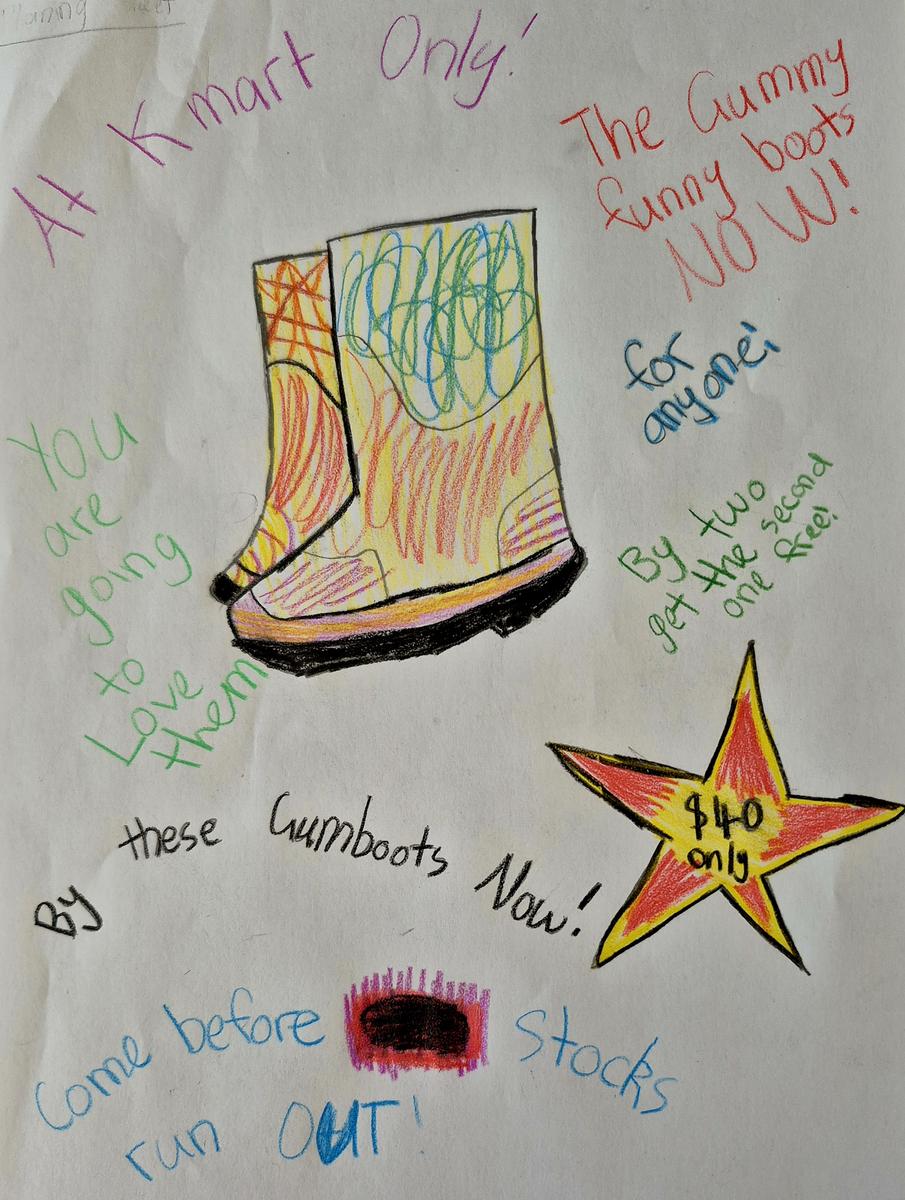 At Kmart Only!
The Gummy
funny boots
NOW!
for
anyone!
You
are
going
to
Love
them
By two
get the second
one free!
$40
only
By these Gumboots Now!
Come before Stocks
run OUT!